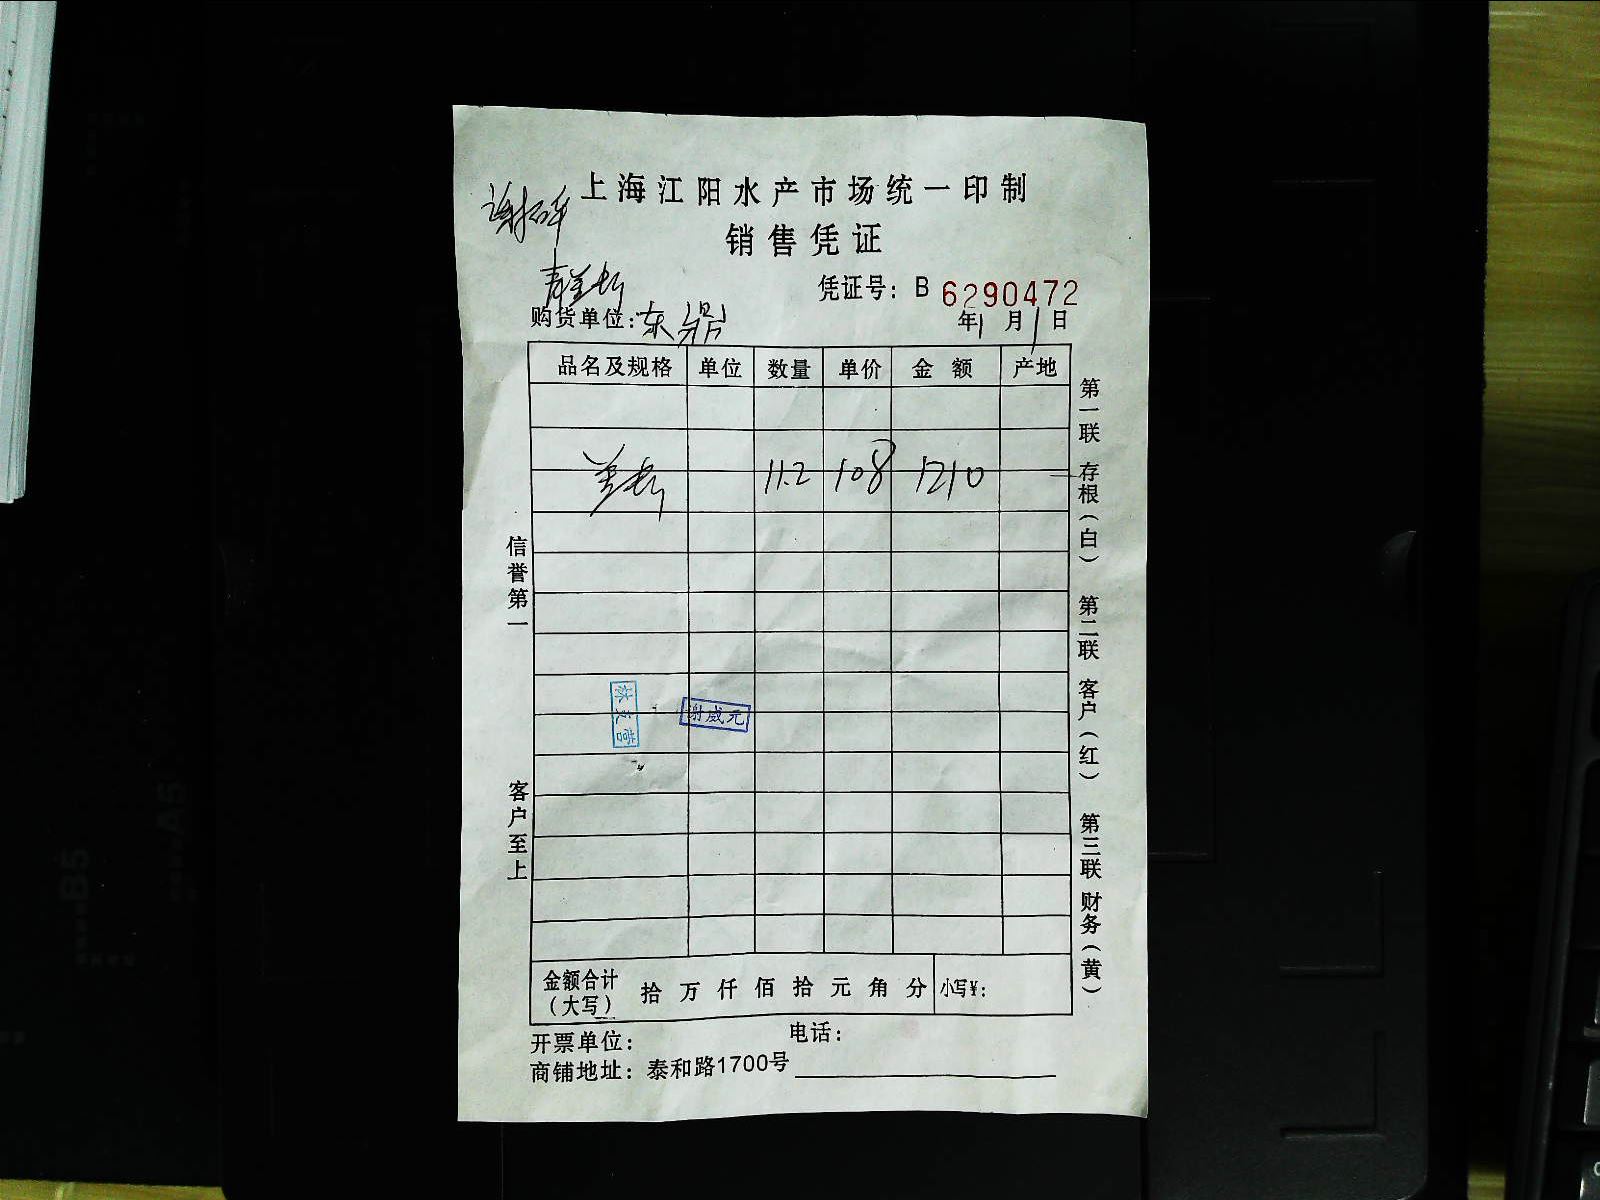 上海江阳水产市场统一印制
销售凭证
凭证号：B 6290472
购货单位：东
年1月1日
品名及规格 单位 数量 单价 金额 产地
11.2 108 1210
信誉第一
客户至上
谢咸元
第一联 存根（白） 第二联 客户（红） 第三联 财务（黄）
金额合计（大写） 拾 万 仟 佰 拾 元 角 分 小写¥：
开票单位： 电话：
商铺地址：泰和路1700号
B5
A5